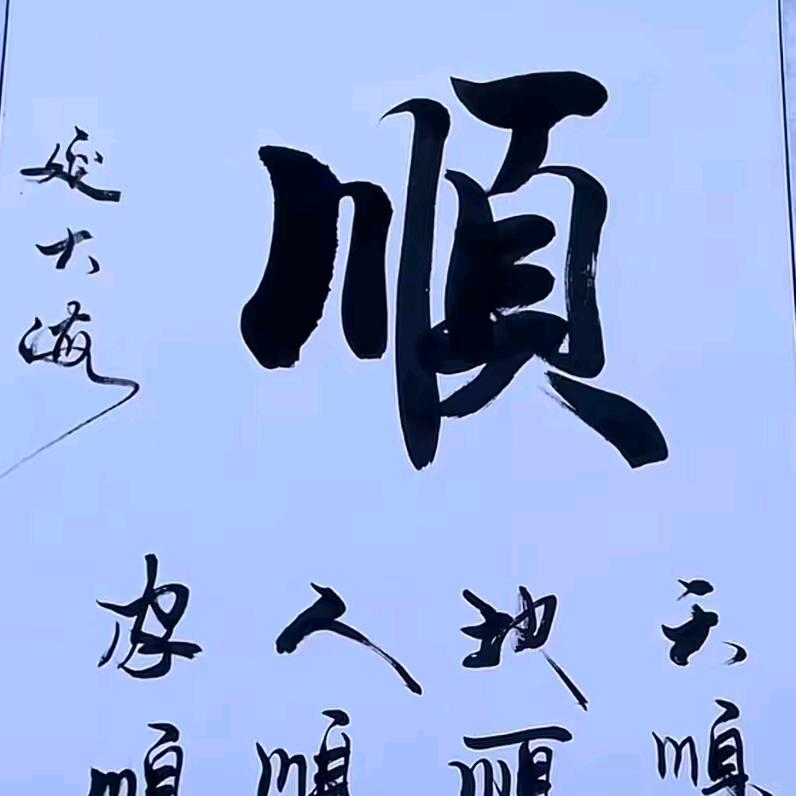 順
天順
地順
人順
家順
延大海